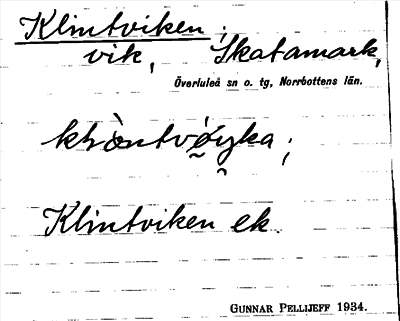 Klintviken,
vik, Skatamark,
Överluleå sn o. tg, Norrbottens län.
Klintviken ek.
GUNNAR PELLIJEFF 1934.